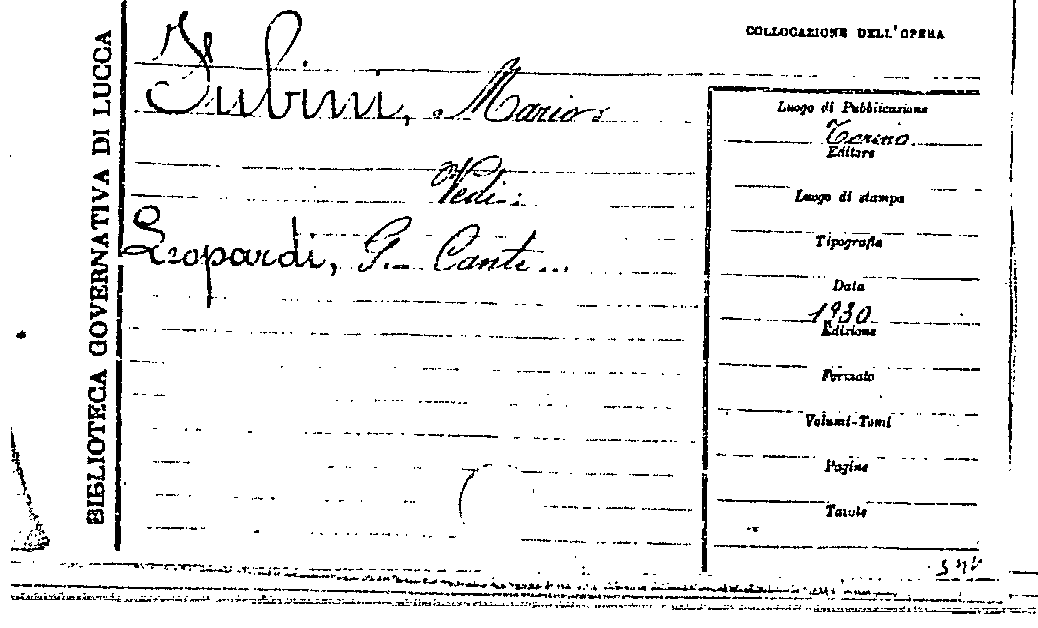 COLLOCAZIONE DELL'OPERA
BIBLIOTECA GOVERNATIVA DI LUCCA
Fubini, Mario
Vedi:
Leopardi, G. - Canti...
Luogo di Pubblicazione
Torino
Editore
Luogo di stampa
Tipografia
Data
1930
Edizione
Formato
Volumi-Tomi
Pagine
Tavole